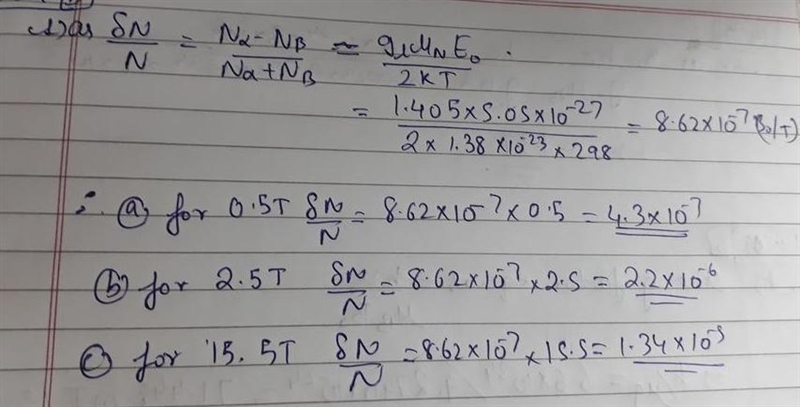 Ans δN/N = Nα-NB/Nα+NB = gIμNE₀/2KT .
= 1.405×5.05×10⁻²⁷/2×1.38×10⁻²³×298 = 8.62×10⁻⁷(B₀/T)
∴ (a) for 0.5T δN/N = 8.62×10⁻⁷×0.5 = 4.3×10⁻⁷
(b) for 2.5T δN/N = 8.62×10⁻⁷×2.5 = 2.2×10⁻⁶
(c) for 15.5T δN/N = 8.62×10⁻⁷×15.5 = 1.34×10⁻⁵